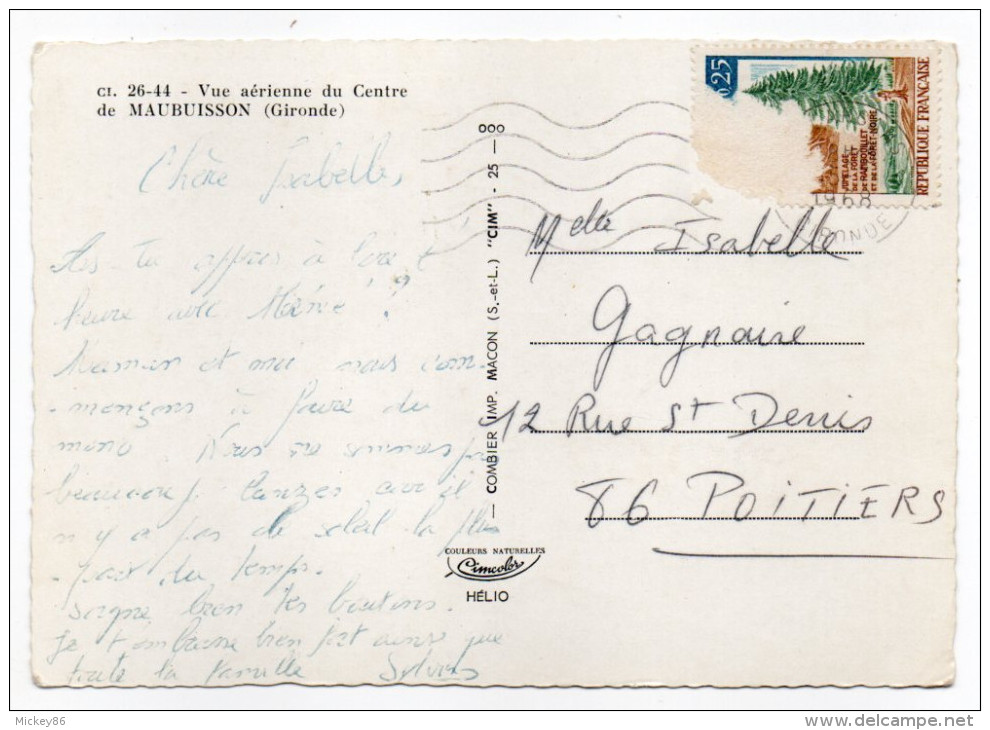 CI. 26-44 - Vue aérienne du Centre
de MAUBUISSON (Gironde)
Chère Isabelle,
As tu appris à lire l'
heure avec Mémé ?
Maman et moi nous com-
-mençons à faire du
mono. Nous ne sommes pas
beaucoup bronzés car il
n'y a pas de soleil la plus
-part du temps.
Soigne bien tes boutons.
Je t'embrasse bien fort ainsi que
toute la famille Sylvie
COMBIER IMP. MACON (S.-et-L.) "CIM" - 25 - 000
COULEURS NATURELLES
Cimcolor
HÉLIO
0,25
REPUBLIQUE FRANÇAISE
JUMELAGE
DE LA FORÊT
DE RAMBOUILLET
ET DE LA FORÊT-NOIRE
1968
GIRONDE
Melle Isabelle
Gagnaire
12 Rue St Denis
86 POITIERS
Mickey86
www.delcampe.net